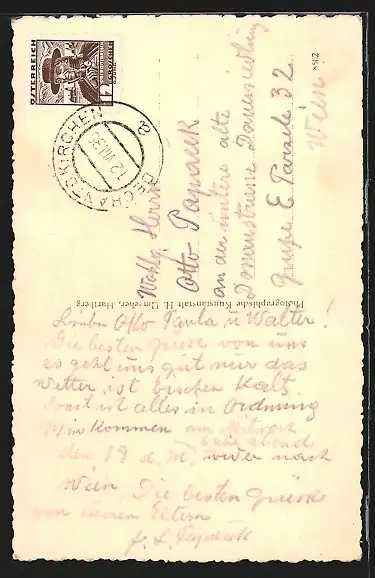 ÖSTERREICH
12 GROSCHEN
DECHANTSKIRCHEN
12.VIII.36
a
Wohlg. Herrn
Otto
an der untere alte
Donaustrasse
Gruppe E Parzele 32
Wien
Photographische Kunstanstalt H. Umgeher, Hartberg
Lieben Otto Paula u Walter!
Die besten grüse von uns
es geht uns gut nur das
wetter ist bischen kalt
Sonst ist alles in Ordnung
wir kommen am Mitwoch
abend
den 19 d. M. wider nach
Wien. Die besten grüse
von eieren Eltern